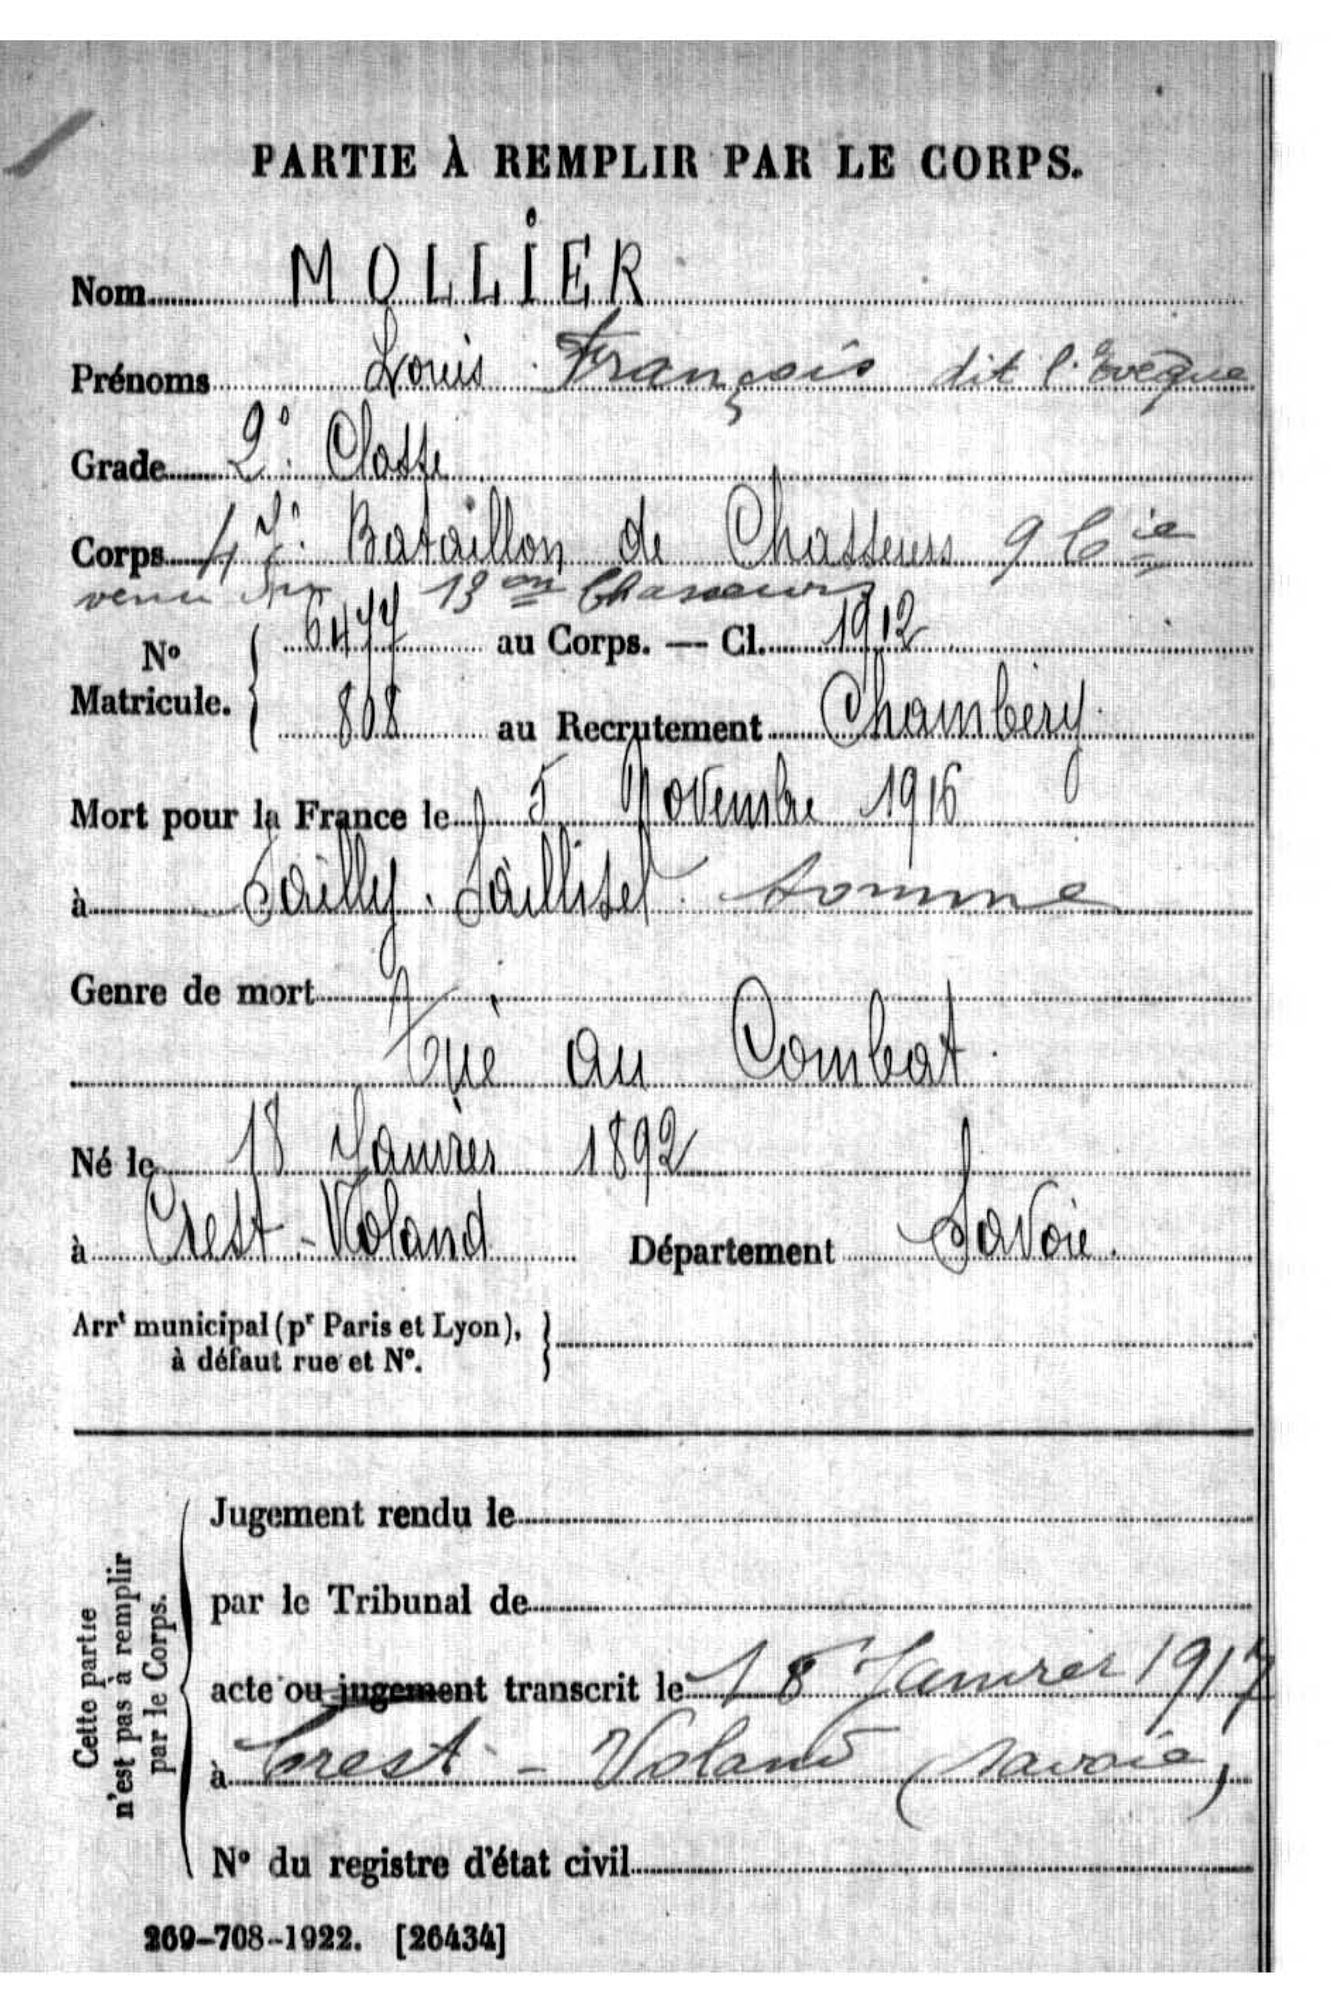 PARTIE À REMPLIR PAR LE CORPS.
Nom MOLLIER
Prénoms Louis François dit l'Evêque
Grade 2e Classe
Corps 47e Bataillon de Chasseurs 9 Cie
venu du 13me Chasseurs
No Matricule. 6477 au Corps. — Cl. 1912
808 au Recrutement Chambéry.
Mort pour la France le 5 Novembre 1916
à Sailly-Saillisel Somme
Genre de mort
Tué au Combat.
Né le 18 Janvier 1892
à Crest-Voland Département Savoie.
Arrt municipal (pr Paris et Lyon),
à défaut rue et No.
Cette partie n'est pas à remplir par le Corps.
Jugement rendu le
par le Tribunal de
acte ou jugement transcrit le 18 Janvier 1917
à Crest-Voland (Savoie)
No du registre d'état civil
269-708-1922. [26434]